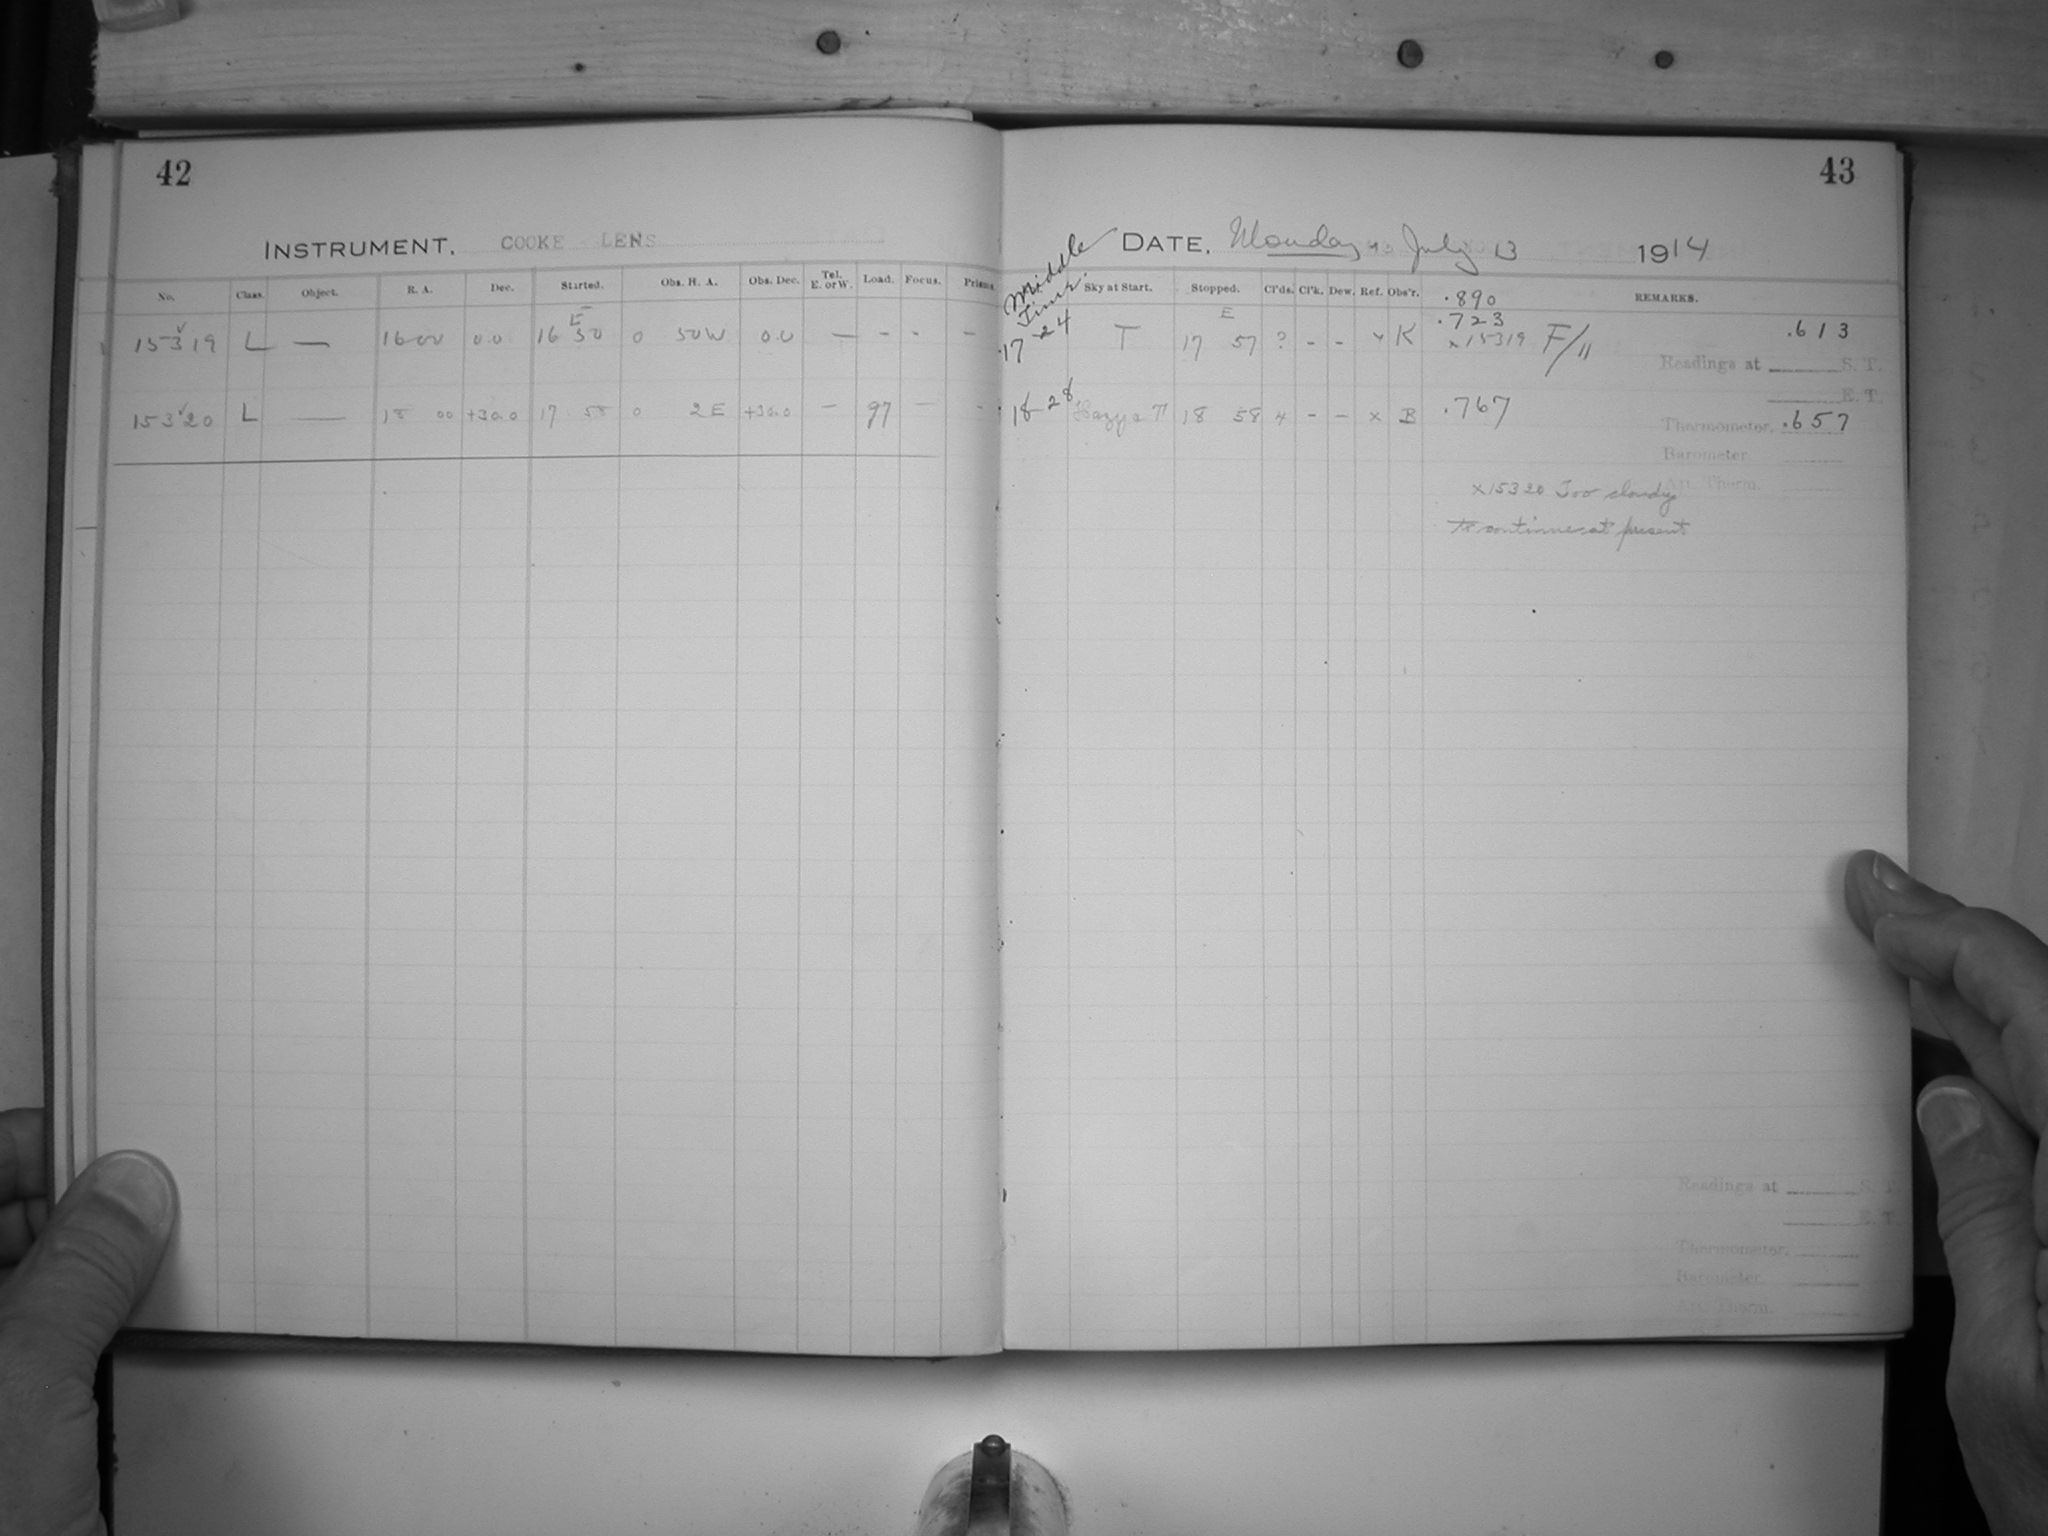 42
43
INSTRUMENT. COOKE LENS
Middle Time.
DATE. Monday July 13 1914
No. Class. Object. R. A. Dec. Started. Obs. H. A. Obs. Dec. Tel. E. or W. Load. Focus. Prisms. Sky at Start. Stopped. Cl'ds. Cl'k. Dew. Ref. Obs'r. REMARKS.
.890
15319 L — 16 00 0.0 16 50 E 0 50W 0.0 — - - - 17-24 T 17 57 E ? - - K .723 .613
x15319 F/11
Readings at S. T.
E. T.
15320 L — 18 00 +30.0 17 58 0 2E +30.0 - 97 - - 18-28 18 58 4 - - x B .767
Thermometer. .657
Barometer
Att. Therm.
x15320 Too cloudy
to continue at present
Readings at S. T.
E. T.
Thermometer.
Barometer
Att. Therm.